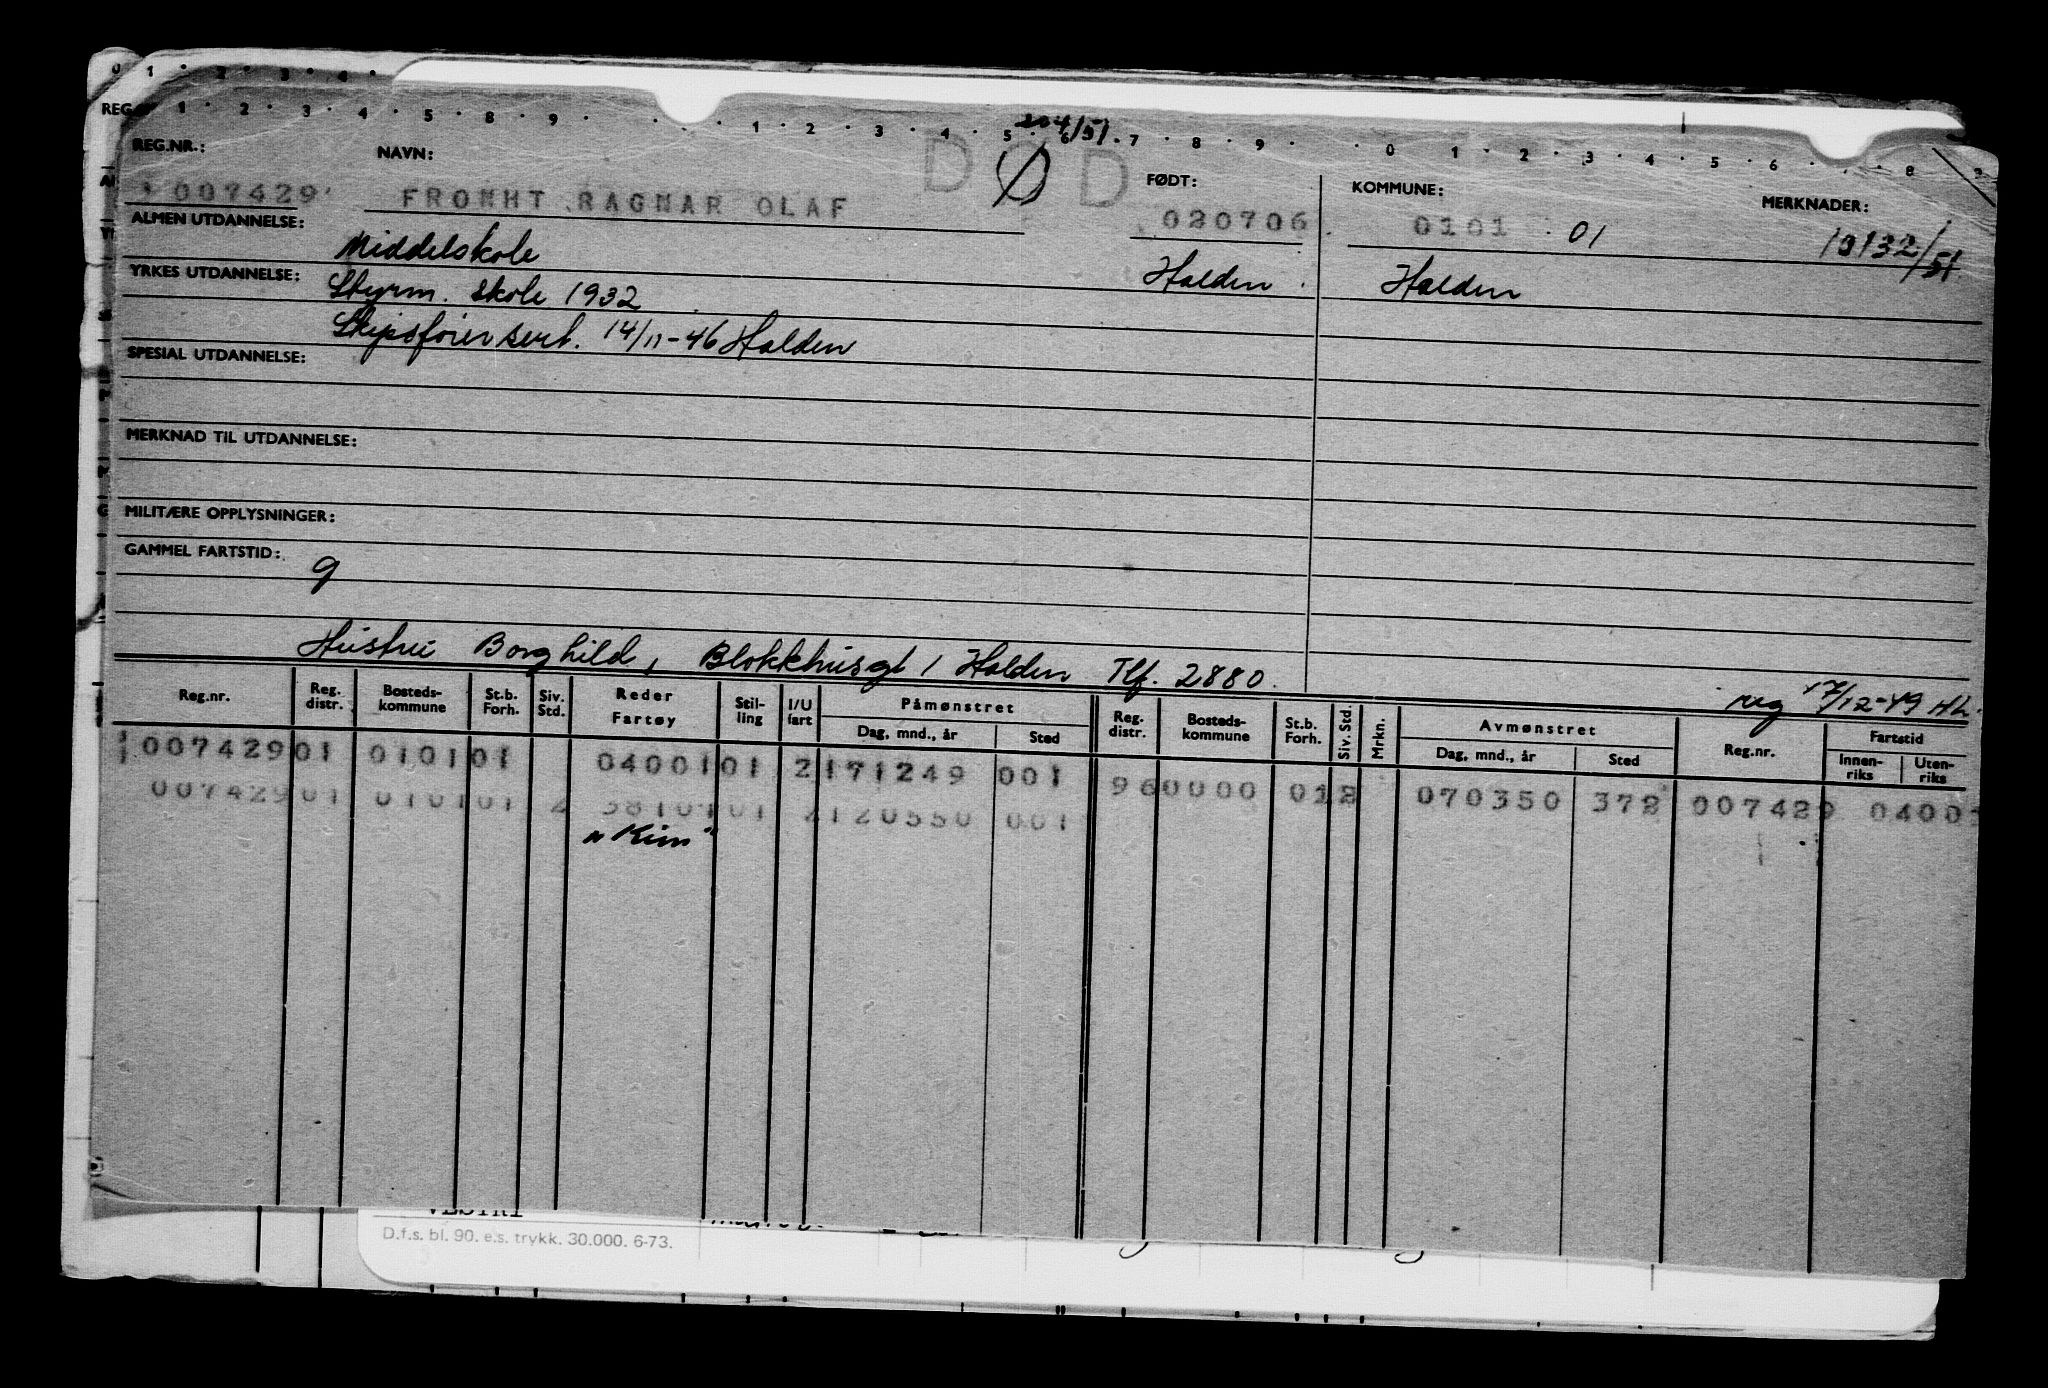 REG.NR.:
NAVN:
DØD
FØDT:
KOMMUNE:
MERKNADER:
007429
FROMHT RAGNAR OLAF
020706
0101 01
10132/51
ALMEN UTDANNELSE:
Middelskole
Halden
Halden
YRKES UTDANNELSE:
Styrm. skole 1932
Skipsfører sert. 14/11-46 Halden
SPESIAL UTDANNELSE:
MERKNAD TIL UTDANNELSE:
MILITÆRE OPPLYSNINGER:
GAMMEL FARTSTID:
9
Hustru Borghild, Blokkhusgt 1 Halden Tlf. 2880.
reg 17/12-49
Reg.nr. Reg. distr. Bosteds-kommune St.b. Forh. Siv. Std. Reder Fartøy Stil-ling I/U fart Påmønstret Dag, mnd., år Sted Reg. distr. Bosteds-kommune St.b. Forh. Siv. Std. Mrkn. Avmønstret Dag, mnd., år Sted Reg.nr. Fartstid Innen-riks Uten-riks
007429 01 0101 01 04001 01 2 171249 001 96 0000 01 2 070350 372 007429 0400
007429 01 0101 01 2 38101 01 2 120550 001
"Kim"
D.f.s. bl. 90. e.s. trykk. 30.000. 6-73.